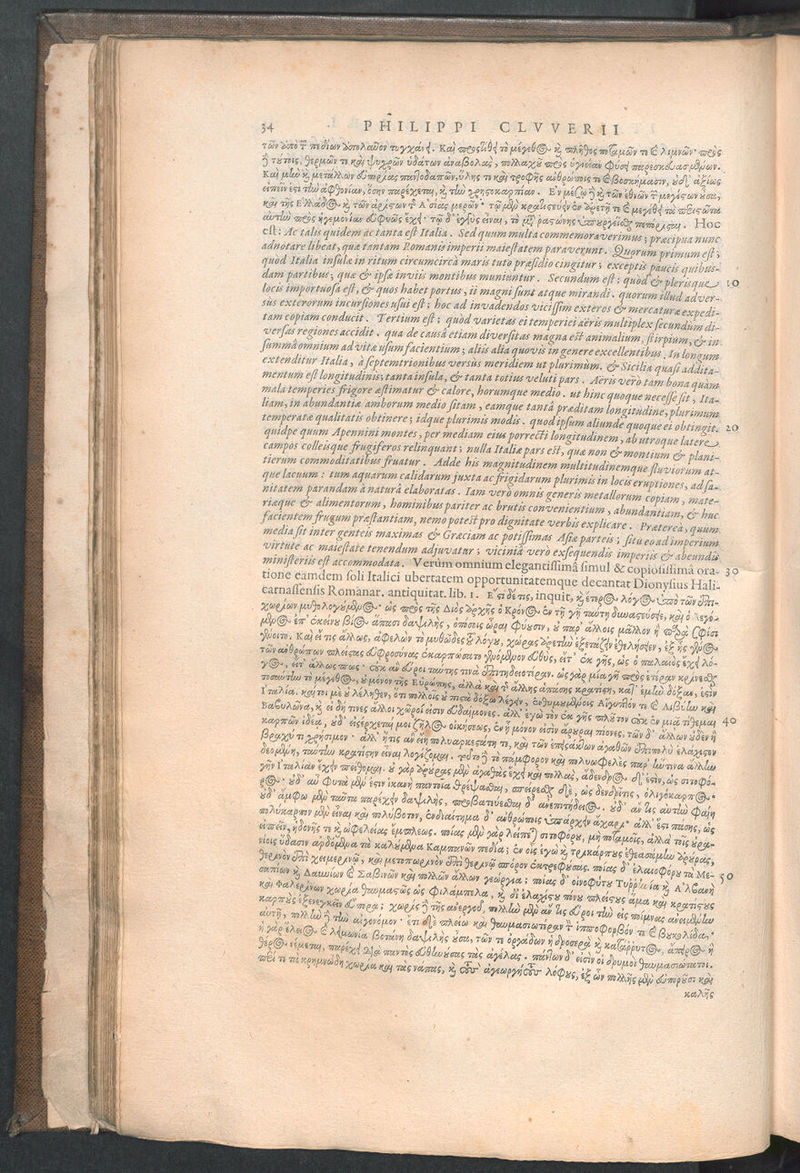 34 PHILIPPI CLVVERII
τῶν ἀπὸ τ πεδίων ἀπολαύον τυγχάνει. Καὶ προςίθει τὸ μέγεθος καὶ πλῆθος ποταμῶν τι καὶ λιμνῶν· πρὸς
ἢ τούτοις, θερμῶν τι καὶ ψυχρῶν ὑδάτων ἀναβολαὶ, πολλαχοῦ πρὸς ὑγιείαν φύσει παρεσκευασμένων.
Καὶ μὴν καὶ μετάλλων εὐπορίας παντοδαπῶν, ὕλης τι καὶ τροφῆς ἀνθρώποις τι καὶ βοσκήμασιν, οὐδ' ἀξίως
εἰπεῖν ἐστὶ τὴν ἀφθονίαν, ὅσην παρέχεται, καὶ τὴν χρηστοκαρπίαν. Ἐν μέσῳ ἢ καὶ τῶν ἐθνῶν τ μεγίστων οὖσα,
καὶ τῆς Ἑλλάδος καὶ τῶν ἀρίστων τ Ἀσίας μερῶν· τῷ μὲν κρατιστεύειν ἐν ἀρετῇ τι καὶ μεγέθει τὰ περιεστῶτα
αὐτὴν πρὸς ἡγεμονίαν εὐφυῶς ἔχει· τῷ δ' ἐγγὺς εἶναι, τὸ μετὰ ῥαστώνης ὑπουργεῖσθαι πεπόρισται. Hoc
est: Ac talis quidem ac tanta est Italia. Sed quum multa commemoraverimus; præcipua nunc
adnotare libeat, quæ tantam Romanis imperii maiestatem paraverunt. Quorum primum est;
quòd Italia insulæ in ritum circumcircà maris tuto præsidio cingitur; exceptis paucis quibus-
dam partibus; quæ & ipsæ inviis montibus muniuntur. Secundum est: quòd & plerisque 10
locis importuosa est, & quos habet portus, ii magni sunt atque mirandi. quorum illud adver-
sus exterorum incursiones usui est: hoc ad invadendos vicissim exteros & mercaturæ expedi-
tam copiam conducit. Tertium est: quòd varietas ei temperiei aëris multiplex secundum di-
versas regiones accidit. qua de causâ etiam diversitas magna est animalium, stirpium, & in
summâ omnium ad vitæ usum facientium; aliis alia quovis in genere excellentibus. In longum
extenditur Italia, à septemtrionibus versùs meridiem ut plurimum. & Sicilia quasi addita-
mentum est longitudinis; tanta insula, & tanta totius veluti pars. Aëris verò tam bona quàm
mala temperies frigore æstimatur & calore, horumque medio. ut hinc quoque necesse sit, Ita-
liam, in abundantiæ amborum medio sitam, eamque tantâ præditam longitudine, plurimum
temperatæ qualitatis obtinere; idque plurimis modis. quod ipsum aliunde quoque ei obtingit. 20
quidpe quum Apennini montes, per mediam eius porrecti longitudinem, ab utroque latere
campos colleisque frugiferos relinquant; nulla Italiæ pars est, quæ non & montium & plani-
tierum commoditatibus fruatur. Adde his magnitudinem multitudinemque fluviorum at-
que lacuum: tum aquarum calidarum juxta ac frigidarum plurimis in locis eruptiones, ad sa-
nitatem parandam à naturâ elaboratas. Iam verò omnis generis metallorum copiam, mate-
riæque & alimentorum, hominibus pariter ac brutis convenientium, abundantiam, & huc
facientem frugum præstantiam, nemo potest pro dignitate verbis explicare. Præterea, quum
media sit inter genteis maximas & Græciam ac potissimas Asiæ parteis; situ eo ad imperium
virtute ac maiestate tenendum adjuvatur; viciniâ verò exsequendis imperiis & abeundis
ministeriis est accommodata. Verùm omnium elegantissimâ simul & copiosissimâ ora- 30
tione eamdem soli Italici ubertatem opportunitatemque decantat Dionysius Hali-
carnassensis Romanar. antiquitat. lib. I. Ἔτι δέ τις, inquit, καὶ ἕτερος λόγος ὑπὸ τῶν ἐπι-
χωρίων μυθολογούμενος· ὡς πρὸ τῆς Διὸς ἀρχῆς ὁ Κρόνος ἐν τῇ γῇ ταύτῃ δυναστεύσειε, καὶ ὁ λεγό-
μενος ἐπ' ἐκείνου βίος ἅπασι δαψιλὴς, ὁπόσοις ὧραι φύουσιν, οὐ παρ' ἄλλοις μᾶλλον ἢ παρὰ σφίσι
γένοιτο. Καὶ εἴ τις ἄλλως, ἀφελὼν τὸ μυθῶδες τοῦ λόγου, χώρας ἀρετὴν ἐξετάζειν ἐθελήσειεν, ἐξ ἧς γένος
τῶν ἀνθρώπων πλείστας εὐφροσύνας ἐκαρπώσατο γενόμενον εὐθὺς, εἴτ' ἐκ γῆς, ὡς ὁ παλαιὸς ἔχει λό-
γος, εἴτ' ἄλλως πως· οὐκ ἂν εὕροι ταύτης τινὰ ἐπιτηδειοτέραν. ὡς γὰρ μία γῆ πρὸς ἑτέραν κρίνεσθαι
τοσαύτη τὸ μέγεθος, οὐ μόνον τῆς Εὐρώπης, ἀλλὰ καὶ τ ἄλλης ἁπάσης κρατίστη, κατ' ἐμὴν δόξαν, ἐστὶν
Ἰταλία. καίτοι με οὐ λέληθεν, ὅτι πολλοῖς οὐ πιστὰ δόξω λέγειν, ἐνθυμουμένοις Αἴγυπτόν τι καὶ Λιβύην καὶ
Βαβυλῶνα, καὶ εἰ δή τινες ἄλλοι χῶροί εἰσιν εὐδαίμονες. ἀλλ' ἐγὼ τὸν ἐκ γῆς πλοῦτον οὐκ ἐν μιᾷ τίθεμαι 40
καρπῶν ἰδέᾳ, οὐδ' εἰσέρχεταί μοι ζῆλος οἰκήσεως, ἐν ᾗ μόνον εἰσὶν ἄρουραι πίονες, τῶν δ' ἄλλων οὐδὲν ἢ
βραχύ τι χρήσιμον· ἀλλ' ἥτις ἂν εἴη πολυαρκεστάτη τι, καὶ τῶν ἐπεισάκτων ἀγαθῶν ἐπὶ πολὺ ἐλάχιστον
δεομένη, ταύτην κρατίστην εἶναι λογίζομαι. τοῦτο ἢ τὸ πάμφορον καὶ πολυωφελὲς παρ' ἥντινα ἄλλην
γῆν Ἰταλίαν ἔχειν πείθομαι. οὐ γὰρ ἀρούρας μὲν ἀγαθὰς ἔχει καὶ πολλὰς, ἄδενδρος δέ ἐστιν, ὡς σιτοφό-
ρος· οὐδ' αὖ φυτὰ μέν ἐστιν ἱκανὴ παντοῖα θρέψασθαι, σπείρεσθαι δὲ, ὡς δενδρῖτις, ὀλιγόκαρπος·
οὐδ' ἄμφω μὲν ταῦτα παρέχειν δαψιλὴς, προβατεύεσθαι δ' ἀνεπιτήδειος. οὐδ' ἄν τις αὐτὴν φαίη
πολύκαρπον μὲν εἶναι καὶ πολύβοτον, ἐνδιαίτημα δ' ἀνθρώποις ὑπάρχειν ἄχαρι· ἀλλ' ἔστι πάσης, ὡς
εἰπεῖν, ἡδονῆς τι καὶ ὠφελείας ἔμπλεως. ποίας μὲν γὰρ λείπεται σιτοφόρου, μὴ ποταμοῖς, ἀλλὰ τοῖς οὐρα-
νίοις ὕδασιν ἀρδομένης τὰ καλούμενα Καμπανῶν πεδία; ἐν οἷς ἐγὼ καὶ τρικάρπους ἐθεασάμην ἀρούρας,
θερινὸν ἐπὶ χειμερινῷ, καὶ μετοπωρινὸν ἐπὶ θερινῷ σπόρον ἐκτρεφούσας. ποίας δ' ἐλαιοφόρου τὰ Με-
σαπίων καὶ Δαυνίων καὶ Σαβίνων καὶ πολλῶν ἄλλων γεώργια; ποίας δ' οἰνοφύτου Τυρρηνία καὶ Ἀλβανὴ 50
καὶ Φαλερίνων χωρία θαυμαστῶς ὡς φιλάμπελα, καὶ δι' ἐλαχίστου πόνου πλείστους ἅμα καὶ κρατίστους
καρποὺς ἐξενεγκεῖν εὔπορα; χωρὶς ἢ τῆς ἐνεργοῦ, πολλὴν μὲν ἄν τις εὕροι τὴν εἰς ποίμνας ἀνειμένην
αὐτῆς, πολλὴν ἢ τὴν αἰγονόμον· ἔτι δὲ πλείω καὶ θαυμασιωτέραν τ ἱπποφορβόν τι καὶ βουκολίδα·
ἡ γὰρ ἕλειος καὶ λειμωνία βοτάνη δαψιλὴς οὖσα, τῶν τι ὀργάδων ἡ δροσερὰ καὶ κατάρρυτος, ἄπειρος ἡ
θέρος νέμεται, παρέχει διὰ παντὸς εὐθενούσας τὰς ἀγέλας. πάντων δ' εἰσὶν οἱ δρυμοὶ θαυμασιώτατοι.
περί τι τὰ κρημνώδη χωρία καὶ τὰς νάπας, καὶ τοὺς ἀγεωργήτους λόφους, ἐξ ὧν πολλῆς μὲν εὐποροῦσι καὶ
καλῆς